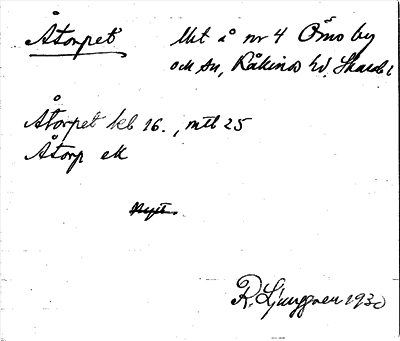 Åtorpet Ust å nr 4 Örnsby
och sn, Kåkinds hd. Skarab l
Åtorpet kbl 16., mtl 25
Åtorp ek
Nytt.
R. Ljunggren 1930